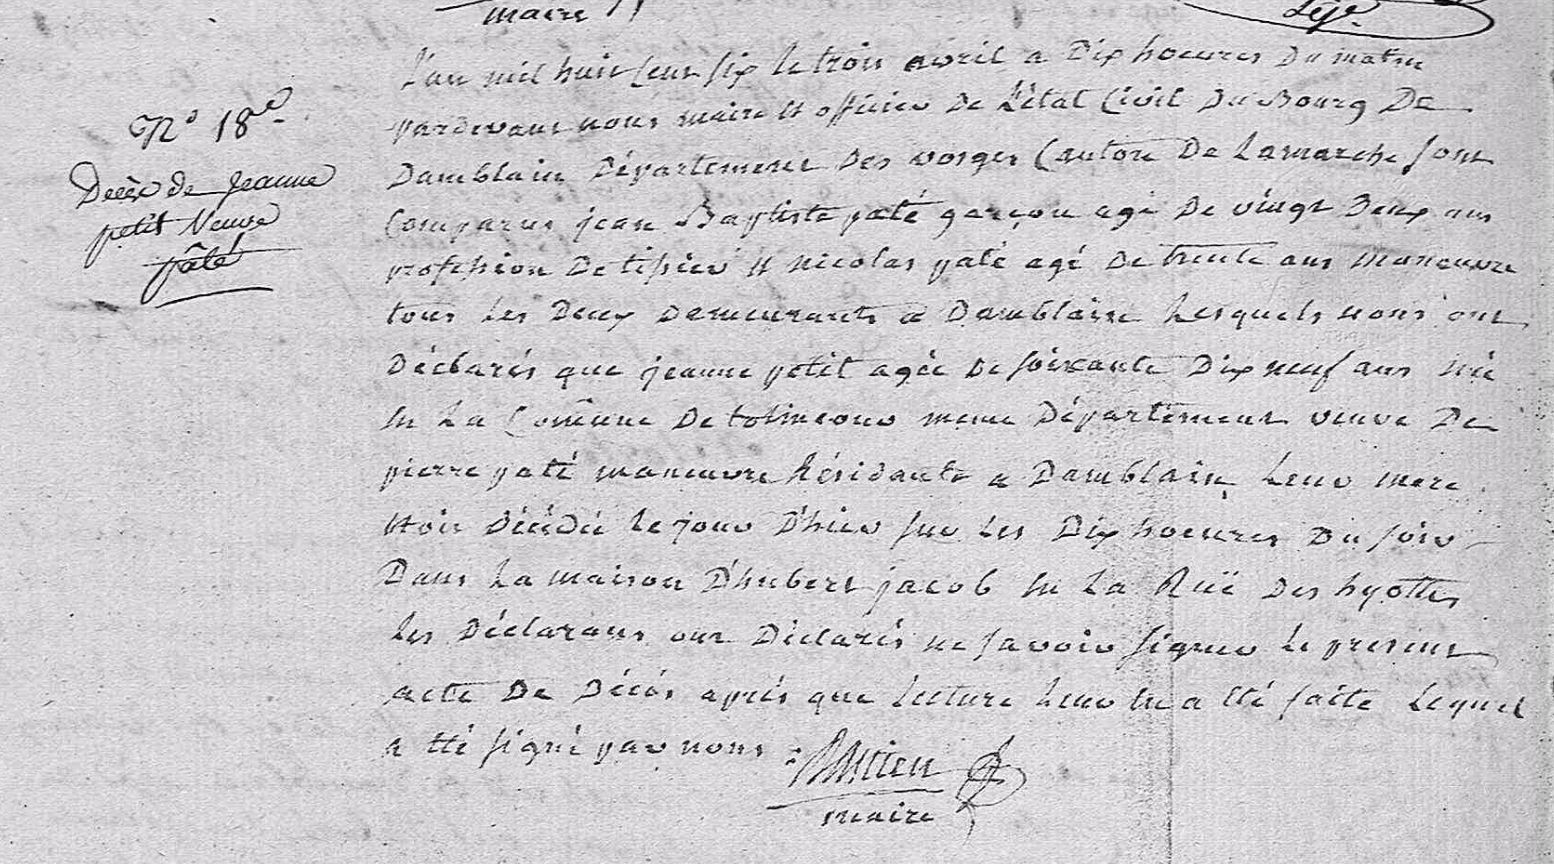 maire
N° 18e
Décès de jeanne
petit Veuve
pâté
L'an mil huit cent six le trois avril a Dix hoeures Du matin
pardevant nous maire et officier De L'état Civil Du Bourg De
Damblain Département Des vosges Canton De Lamarche sont
Comparus jean Baptiste paté garçon agé De vingt Deux ans
profession De tissier et nicolas paté agé De trente ans manoeuvre
tous Les Deux Demeurants a Damblain Lesquels nous ont
Déclarés que jeanne petit agée De soixante Dix neuf ans née
en La Comune De même Département veuve De
pierre paté manoeuvre Résidante a Damblain Leur mere
etoit Décédée Le jour D'hier sur Les Dix hoeures Du soir
Dans La maison D'hubert jacob en La Ruë Des hyottes
Les Déclarans ont Déclarés ne savoir signer Le present
acte De Décés aprés que Lecture Leur en a été faite Lequel
a été signé par nous
maire